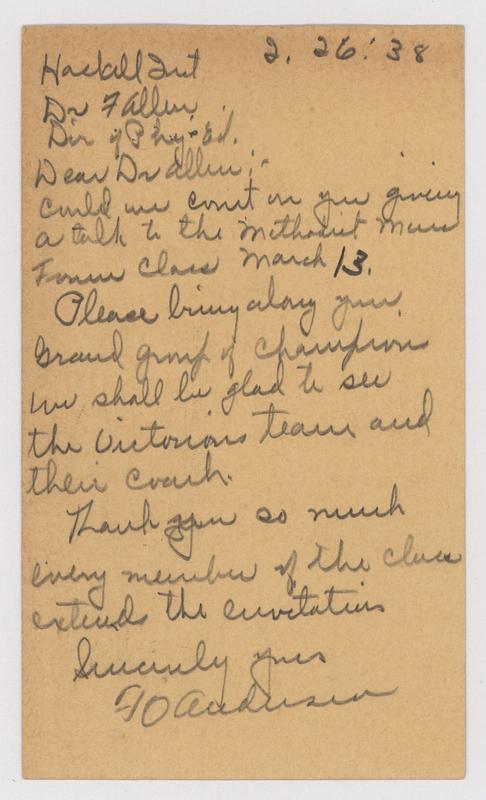 2. 26: 38
Haskell Inst
Dr F Allen
Dir of Phy. Ed.
Dear Dr Allen:-
Could we count on you giving
a talk to the Methodist Mens
Forum Class March 13.
Please bring along your
Grand group of Champions
we shall be glad to see
the Victorious team and
their coach.
Thank you so much
every member of the class
extends the invitation
Sincerely yours
FO Anderson